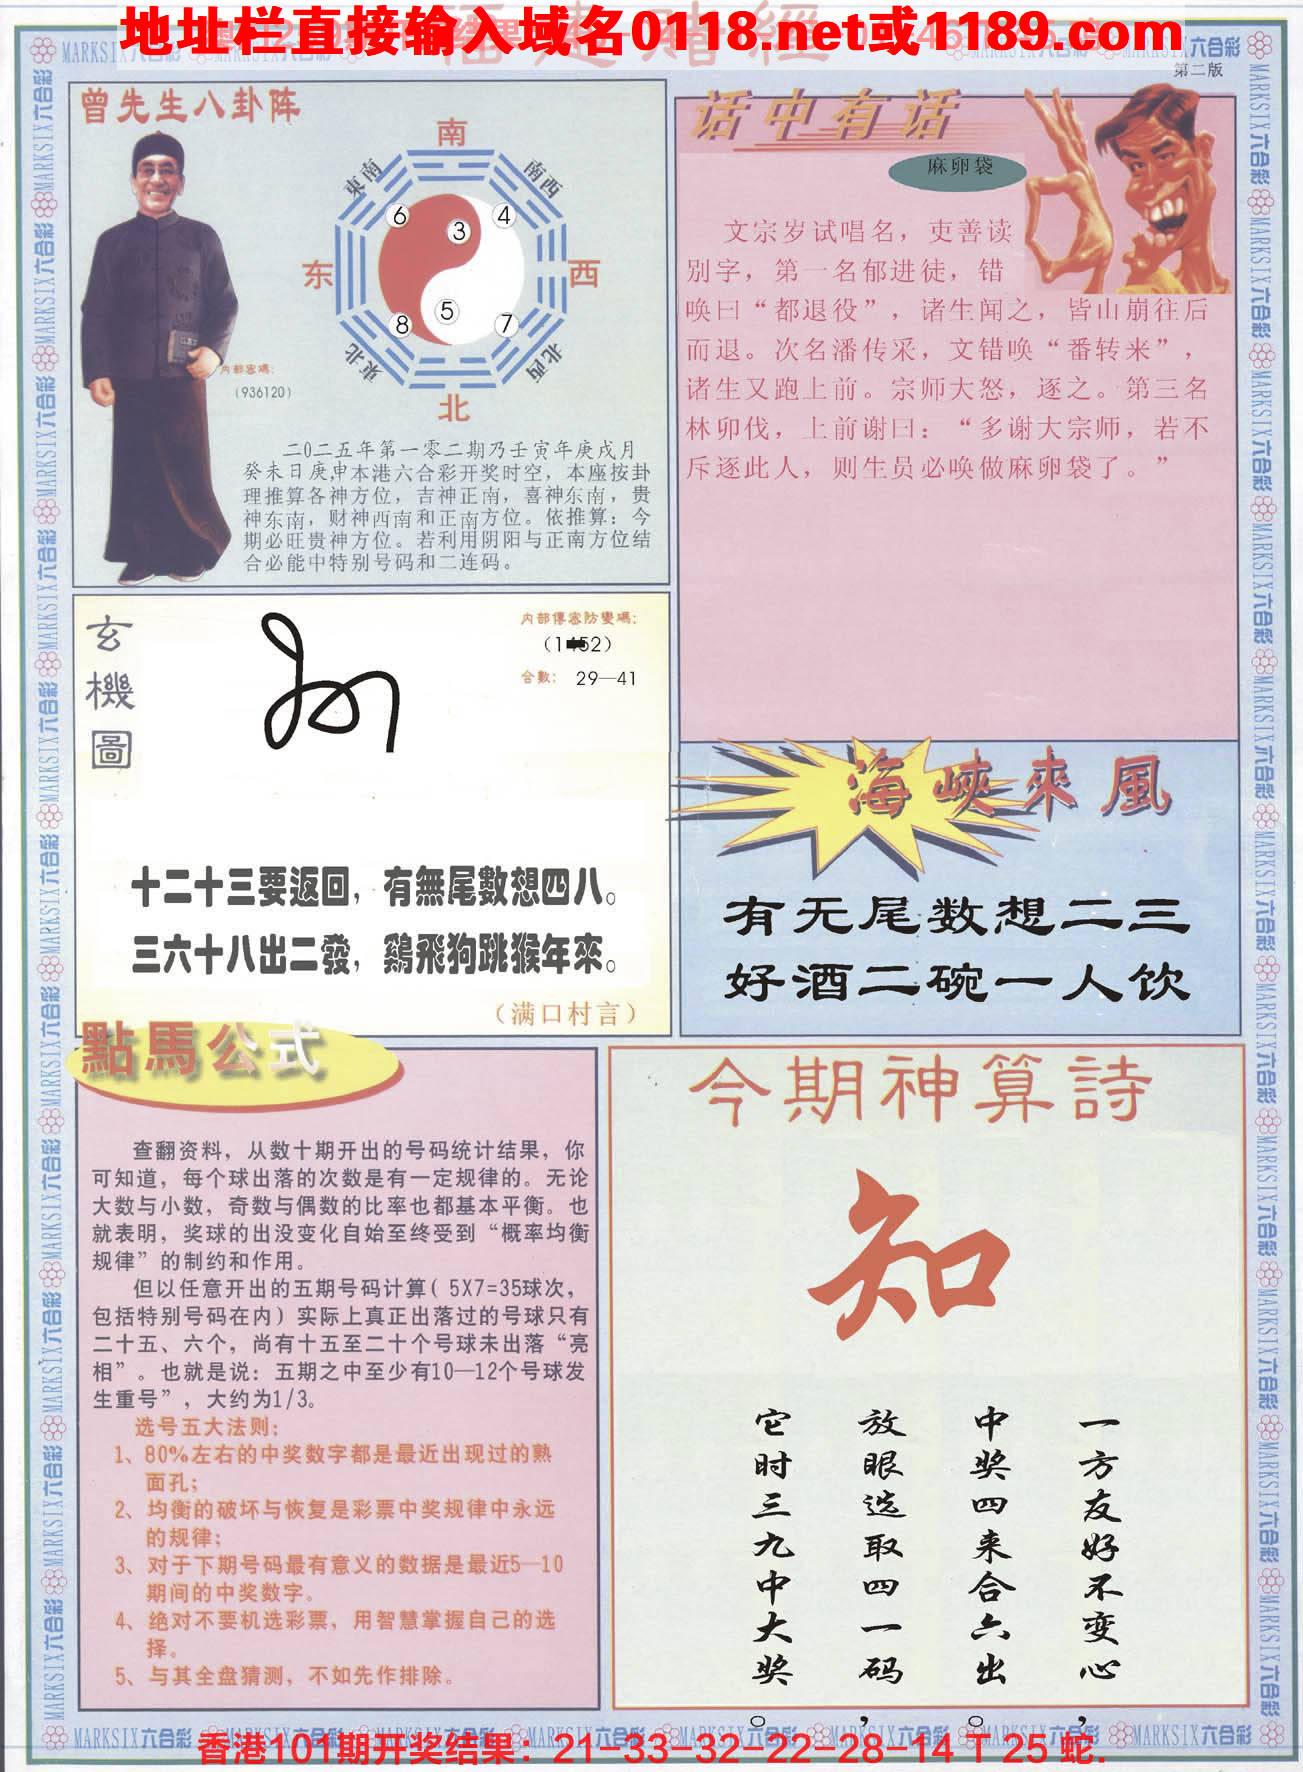 地址栏直接输入域名0118.net或1189.com
第二版
曾先生八卦阵
南
東南
南西
6
3
4
东
西
5
8
7
東北
北西
北
内部密碼:
(936120)
二0二五年第一零二期乃壬寅年庚戌月
癸未日庚申本港六合彩开奖时空，本座按卦
理推算各神方位，吉神正南，喜神东南，贵
神东南，财神西南和正南方位。依推算：今
期必旺贵神方位。若利用阴阳与正南方位结
合必能中特别号码和二连码。
话中有话
麻卵袋
文宗岁试唱名，吏善读
别字，第一名郁进徒，错
唤曰“都退役”，诸生闻之，皆山崩往后
而退。次名潘传采，文错唤“番转来”，
诸生又跑上前。宗师大怒，逐之。第三名
林卯伐，上前谢曰：“多谢大宗师，若不
斥逐此人，则生员必唤做麻卵袋了。”
玄機圖
内部傳密防變碼:
合數: 29—41
十二十三要返回，有無尾數想四八。
三六十八出二發，鷄飛狗跳猴年來。
（满口村言）
海峽來風
有无尾数想二三
好酒二碗一人饮
點馬公式
查翻资料，从数十期开出的号码统计结果，你
可知道，每个球出落的次数是有一定规律的。无论
大数与小数，奇数与偶数的比率也都基本平衡。也
就表明，奖球的出没变化自始至终受到“概率均衡
规律”的制约和作用。
但以任意开出的五期号码计算( 5X7=35球次，
包括特别号码在内) 实际上真正出落过的号球只有
二十五、六个，尚有十五至二十个号球未出落“亮
相”。也就是说：五期之中至少有10—12个号球发
生重号”，大约为1/3。
选号五大法则；
1、80%左右的中奖数字都是最近出现过的熟
面孔；
2、均衡的破坏与恢复是彩票中奖规律中永远
的规律；
3、对于下期号码最有意义的数据是最近5—10
期间的中奖数字。
4、绝对不要机选彩票，用智慧掌握自己的选
择。
5、与其全盘猜测，不如先作排除。
今期神算詩
知
一方友好不变心，
中奖四来合六出。
放眼选取四一码，
它时三九中大奖。
MARKSIX六合彩
香港101期开奖结果：21-33-32-22-28-14 T 25 蛇.